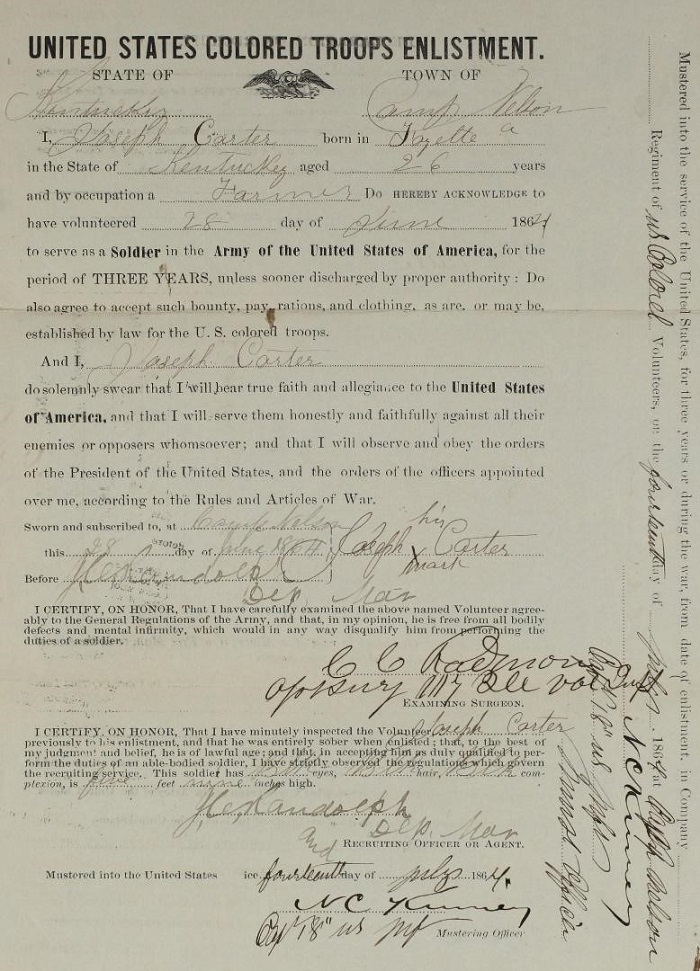 UNITED STATES COLORED TROOPS ENLISTMENT.
STATE OF TOWN OF
Kentucky Camp Nelson
I, Joseph Carter born in Fayette
in the State of Kentuckey aged 26 years
and by occupation a Farmer Do HEREBY ACKNOWLEDGE to
have volunteered 28 day of June 1864
to serve as a Soldier in the Army of the United States of America, for the
period of THREE YEARS, unless sooner discharged by proper authority: Do
also agree to accept such bounty, pay, rations, and clothing, as are, or may be,
established by law for the U. S. colored troops.
And I, Joseph Carter
do solemnly swear that I will bear true faith and allegiance to the United States
of America, and that I will serve them honestly and faithfully against all their
enemies or opposers whomsoever; and that I will observe and obey the orders
of the President of the United States, and the orders of the officers appointed
over me, according to the Rules and Articles of War.
Sworn and subscribed to, at Camp Nelson his
this 28 day of June 1864 Joseph X Carter
mark
Before J C Randolph
Dep. Mar
I CERTIFY, ON HONOR, That I have carefully examined the above named Volunteer agree-
ably to the General Regulations of the Army, and that, in my opinion, he is free from all bodily
defects and mental infirmity, which would in any way disqualify him from performing the
duties of a soldier.
C C Radmon
Ill Vol Inf
EXAMINING SURGEON.
I CERTIFY, ON HONOR, That I have minutely inspected the Volunteer Joseph Carter
previously to his enlistment, and that he was entirely sober when enlisted; that, to the best of
my judgment and belief, he is of lawful age; and that, in accepting him as duly qualified to per-
form the duties of an able-bodied soldier, I have strictly observed the regulations which govern
the recruiting service. This soldier has eyes, hair, com-
plexion, is five feet nine inches high.
J C Randolph
Dep. Mar
RECRUITING OFFICER OR AGENT.
Mustered into the United States ice, fourteenth day of July 1864.
N C Kinney
Capt 18" US Inf Mustering Officer
Mustered into the service of the United States, for three years or during the war, from date of enlistment, in Company
Regiment of US Colored Volunteers, on the fourteenth day of July 1864 at Camp Nelson
N C Kinney
Capt 18" US Inf
Officer